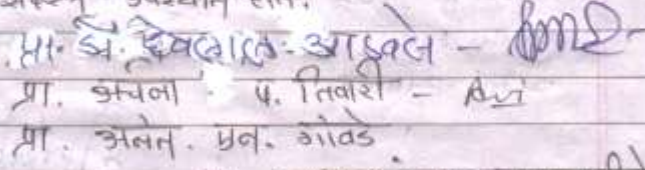 प्रा. डॉ. देवलाल आठवले -
प्रा. अर्चना प. तिवारी -
प्रा. अनंत. एन. गावंडे